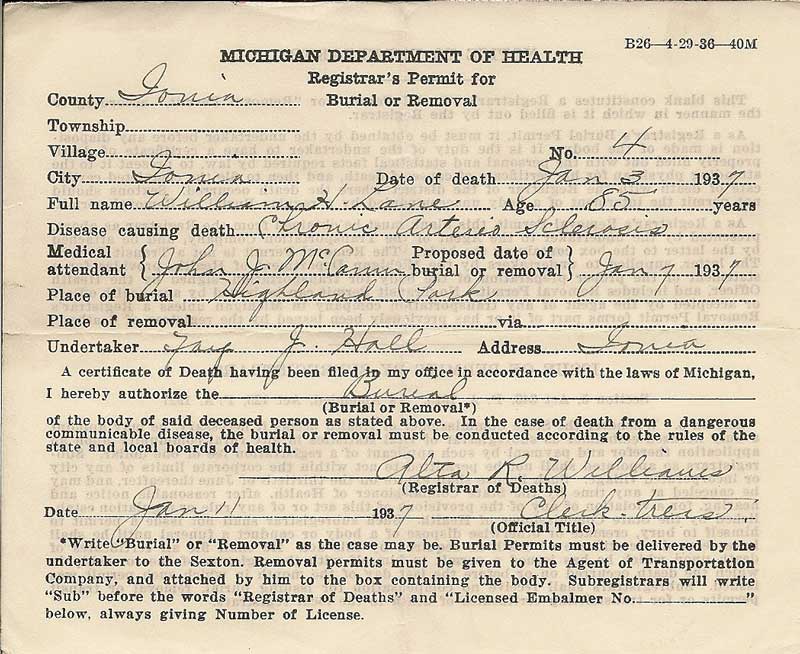 B26—4-29-36—40M
MICHIGAN DEPARTMENT OF HEALTH
Registrar's Permit for
County Ionia Burial or Removal
Township
Village No. 4
City Ionia Date of death Jan 3 1937
Full name William H. Lane Age 85 years
Disease causing death Chronic Arterio Sclerosis
Medical attendant { John J. McCann Proposed date of burial or removal } Jan 7 1937
Place of burial Highland Park
Place of removal via
Undertaker Fay J. Hall Address Ionia
A certificate of Death having been filed in my office in accordance with the laws of Michigan,
I hereby authorize the Burial
(Burial or Removal*)
of the body of said deceased person as stated above. In the case of death from a dangerous
communicable disease, the burial or removal must be conducted according to the rules of the
state and local boards of health.
Alta R. Williams
(Registrar of Deaths)
Date Jan 11 1937 Clerk-treas
(Official Title)
*Write "Burial" or "Removal" as the case may be. Burial Permits must be delivered by the
undertaker to the Sexton. Removal permits must be given to the Agent of Transportation
Company, and attached by him to the box containing the body. Subregistrars will write
"Sub" before the words "Registrar of Deaths" and "Licensed Embalmer No. "
below, always giving Number of License.